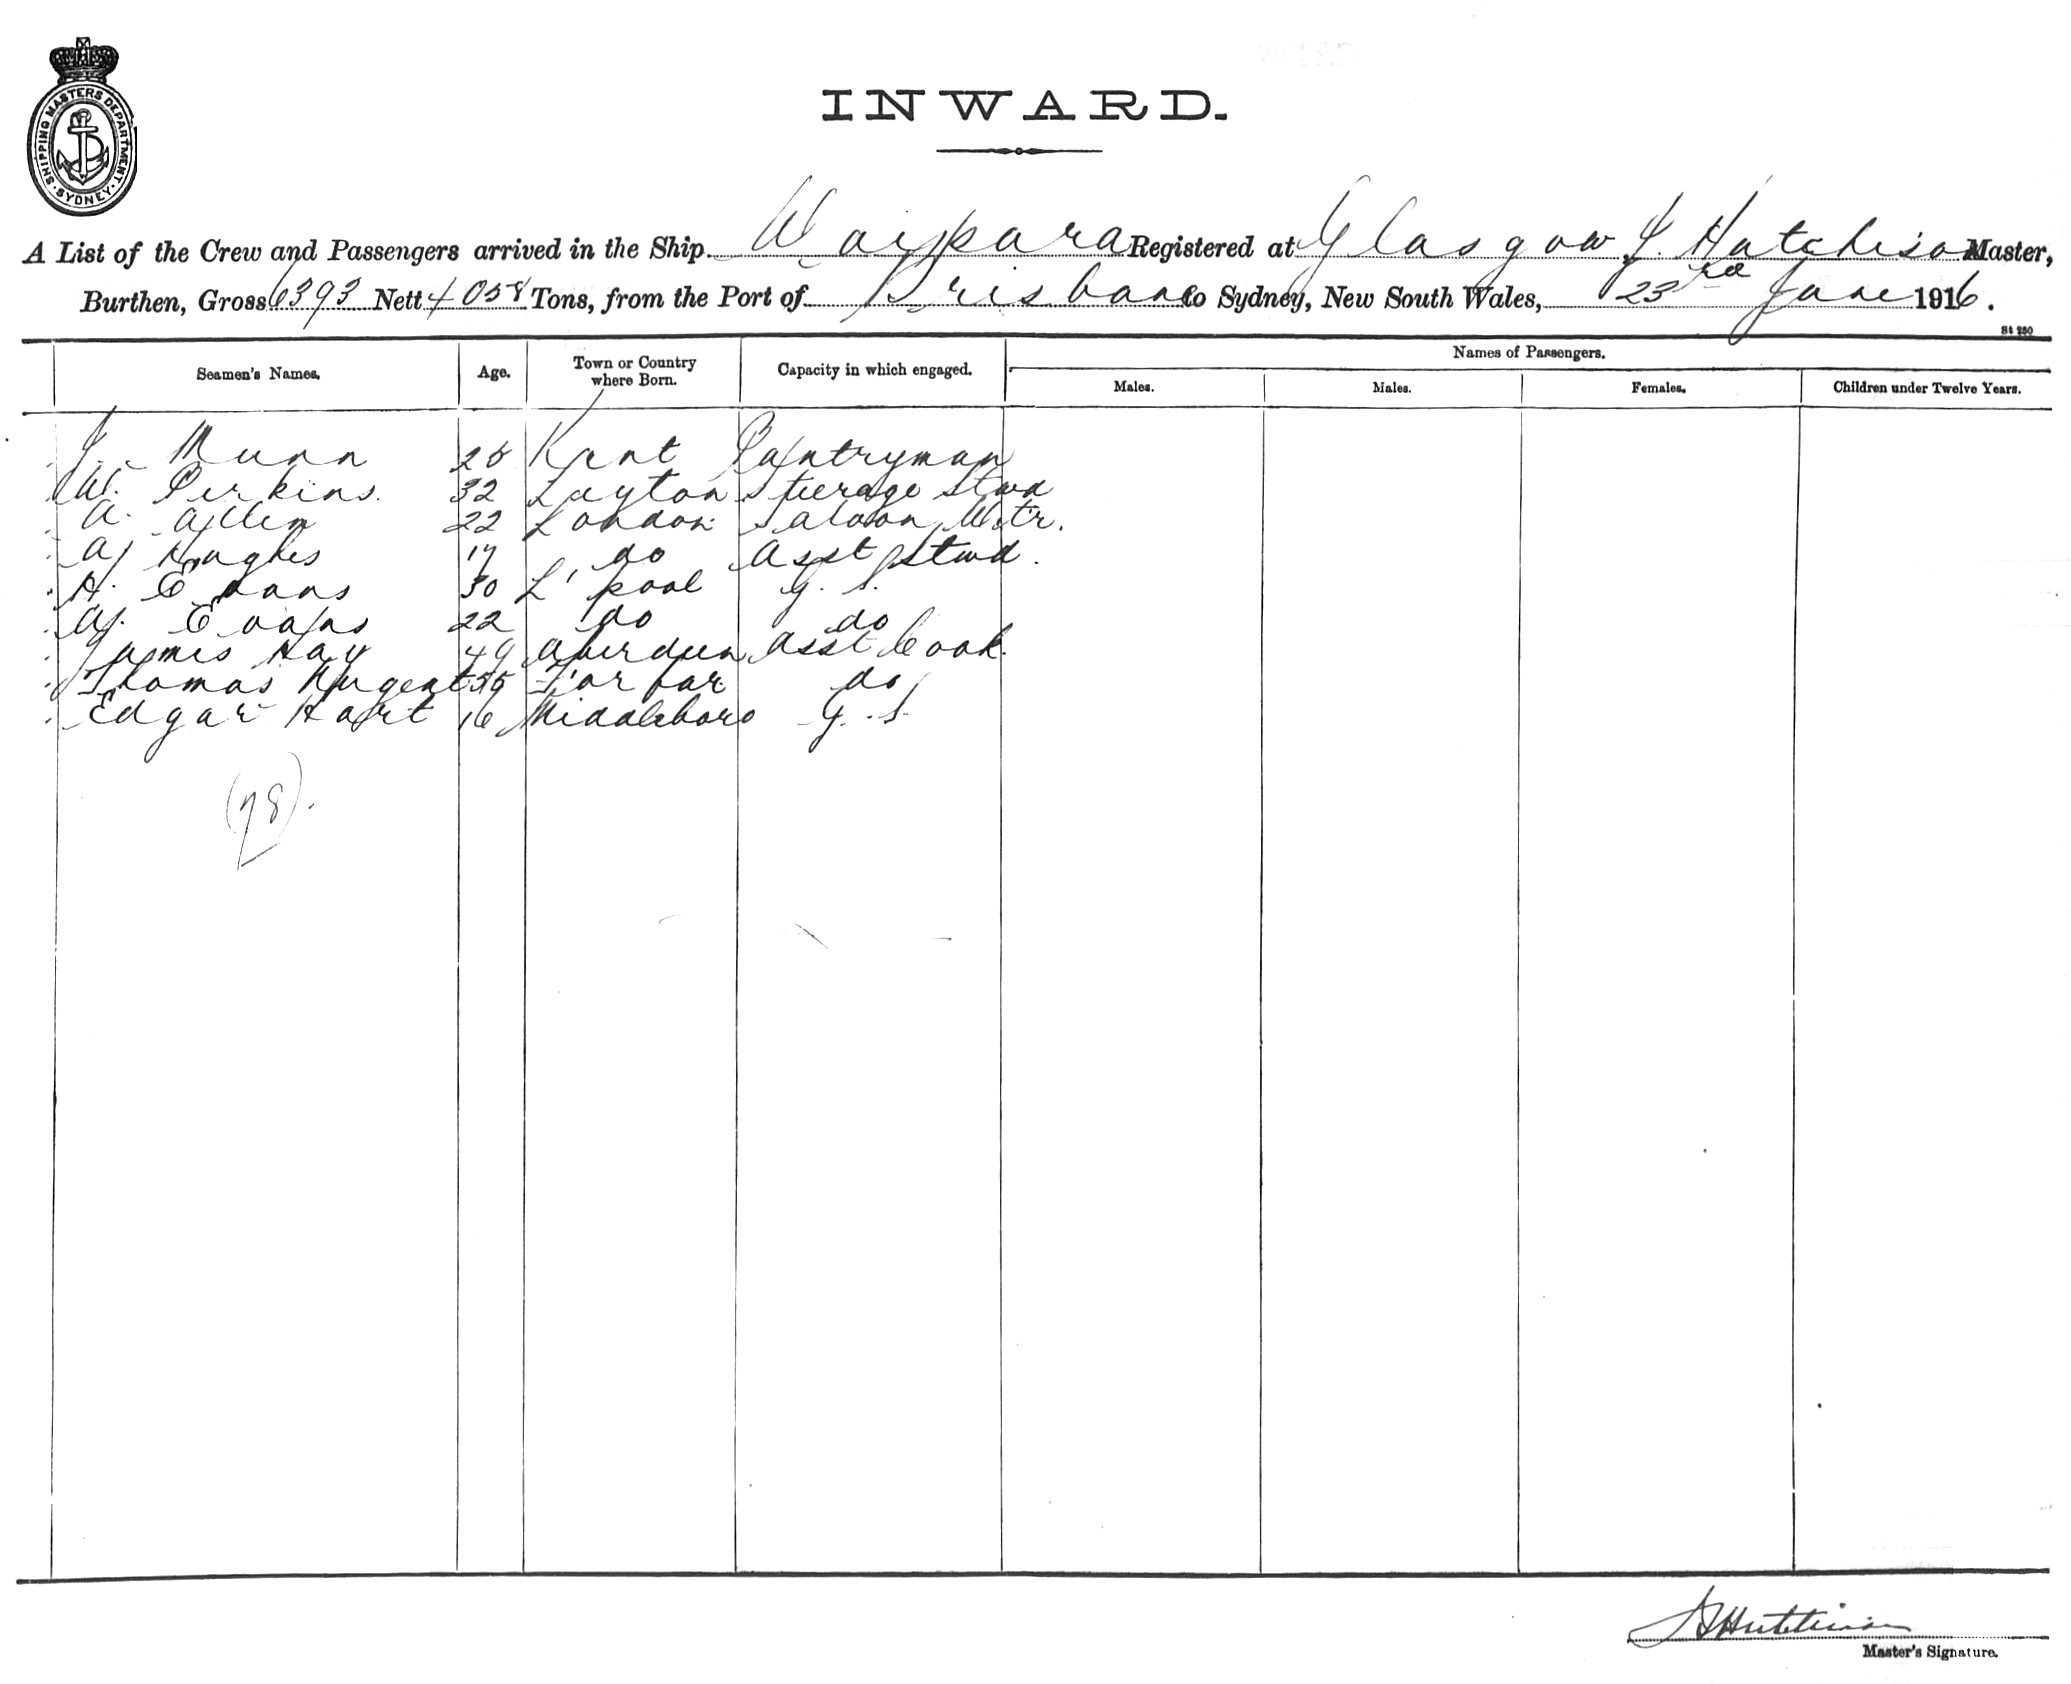 SHIPPING MASTERS DEPARTMENT
SYDNEY
INWARD.
A List of the Crew and Passengers arrived in the Ship Waipara Registered at Glasgow, J. Hutchison Master,
Burthen, Gross 6393 Nett 4058 Tons, from the Port of Brisbane to Sydney, New South Wales, 23rd June 1916.
St 280
Seamen's Names. Age. Town or Country where Born. Capacity in which engaged. Names of Passengers.
Males. Males. Females. Children under Twelve Years.
J. Munn Kent Pantryman
W. Perkins. 32 Layton Steerage Stwd
A. Allen 22 London Saloon Wtr.
A Hughes 17 do Asst Stwd.
H. Evans 30 L'pool G. S.
A. Evans 22 do do
James Hay 49 Aberdeen Asst Cook.
Thomas Nugent 55 Forfar do
Edgar Hart 16 Middleboro G. S
(78).
Hutchison
Master's Signature.